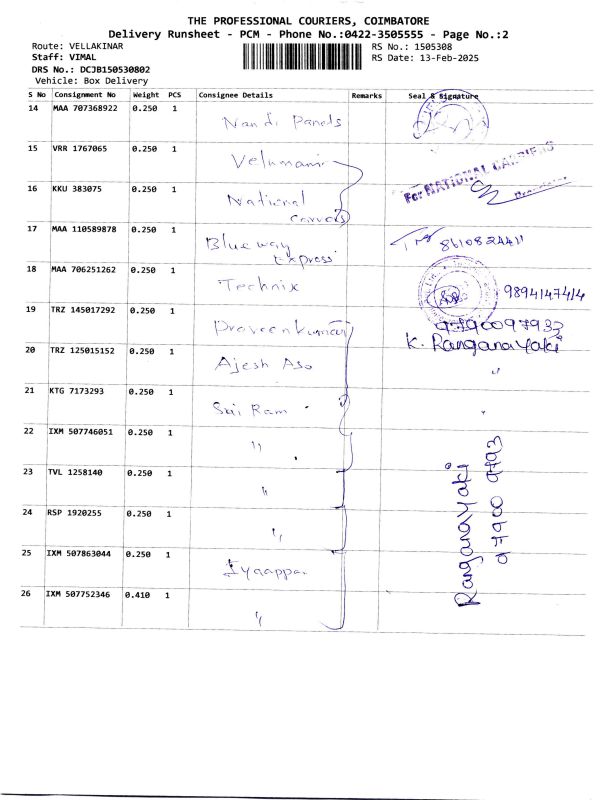 THE PROFESSIONAL COURIERS, COIMBATORE
Delivery Runsheet - PCM - Phone No.:0422-3505555 - Page No.:2
Route: VELLAKINAR
RS No.: 1505308
Staff: VIMAL
RS Date: 13-Feb-2025
DRS No.: DCJB150530802
Vehicle: Box Delivery
S No Consignment No Weight PCS Consignee Details Remarks Seal & Signature
14 MAA 707368922 0.250 1 Nandi Panels
15 VRR 1767065 0.250 1 Velumani
For NATIONAL CARRIERS
16 KKU 383075 0.250 1 National
Carriers
17 MAA 110589878 0.250 1 Blueway 8610824411
Express
18 MAA 706251262 0.250 1 Technix 9894147414
19 TRZ 145017292 0.250 1 Praveenkumar 9790097933
K. Ranganayaki
20 TRZ 125015152 0.250 1 Ajesh Aso "
21 KTG 7173293 0.250 1 Sri Ram
22 IXM 507746051 0.250 1 "
23 TVL 1258140 0.250 1 "
24 RSP 1920255 0.250 1 "
25 IXM 507863044 0.250 1 Iyaappa
26 IXM 507752346 0.410 1 "
Ranganayaki
97900 9793